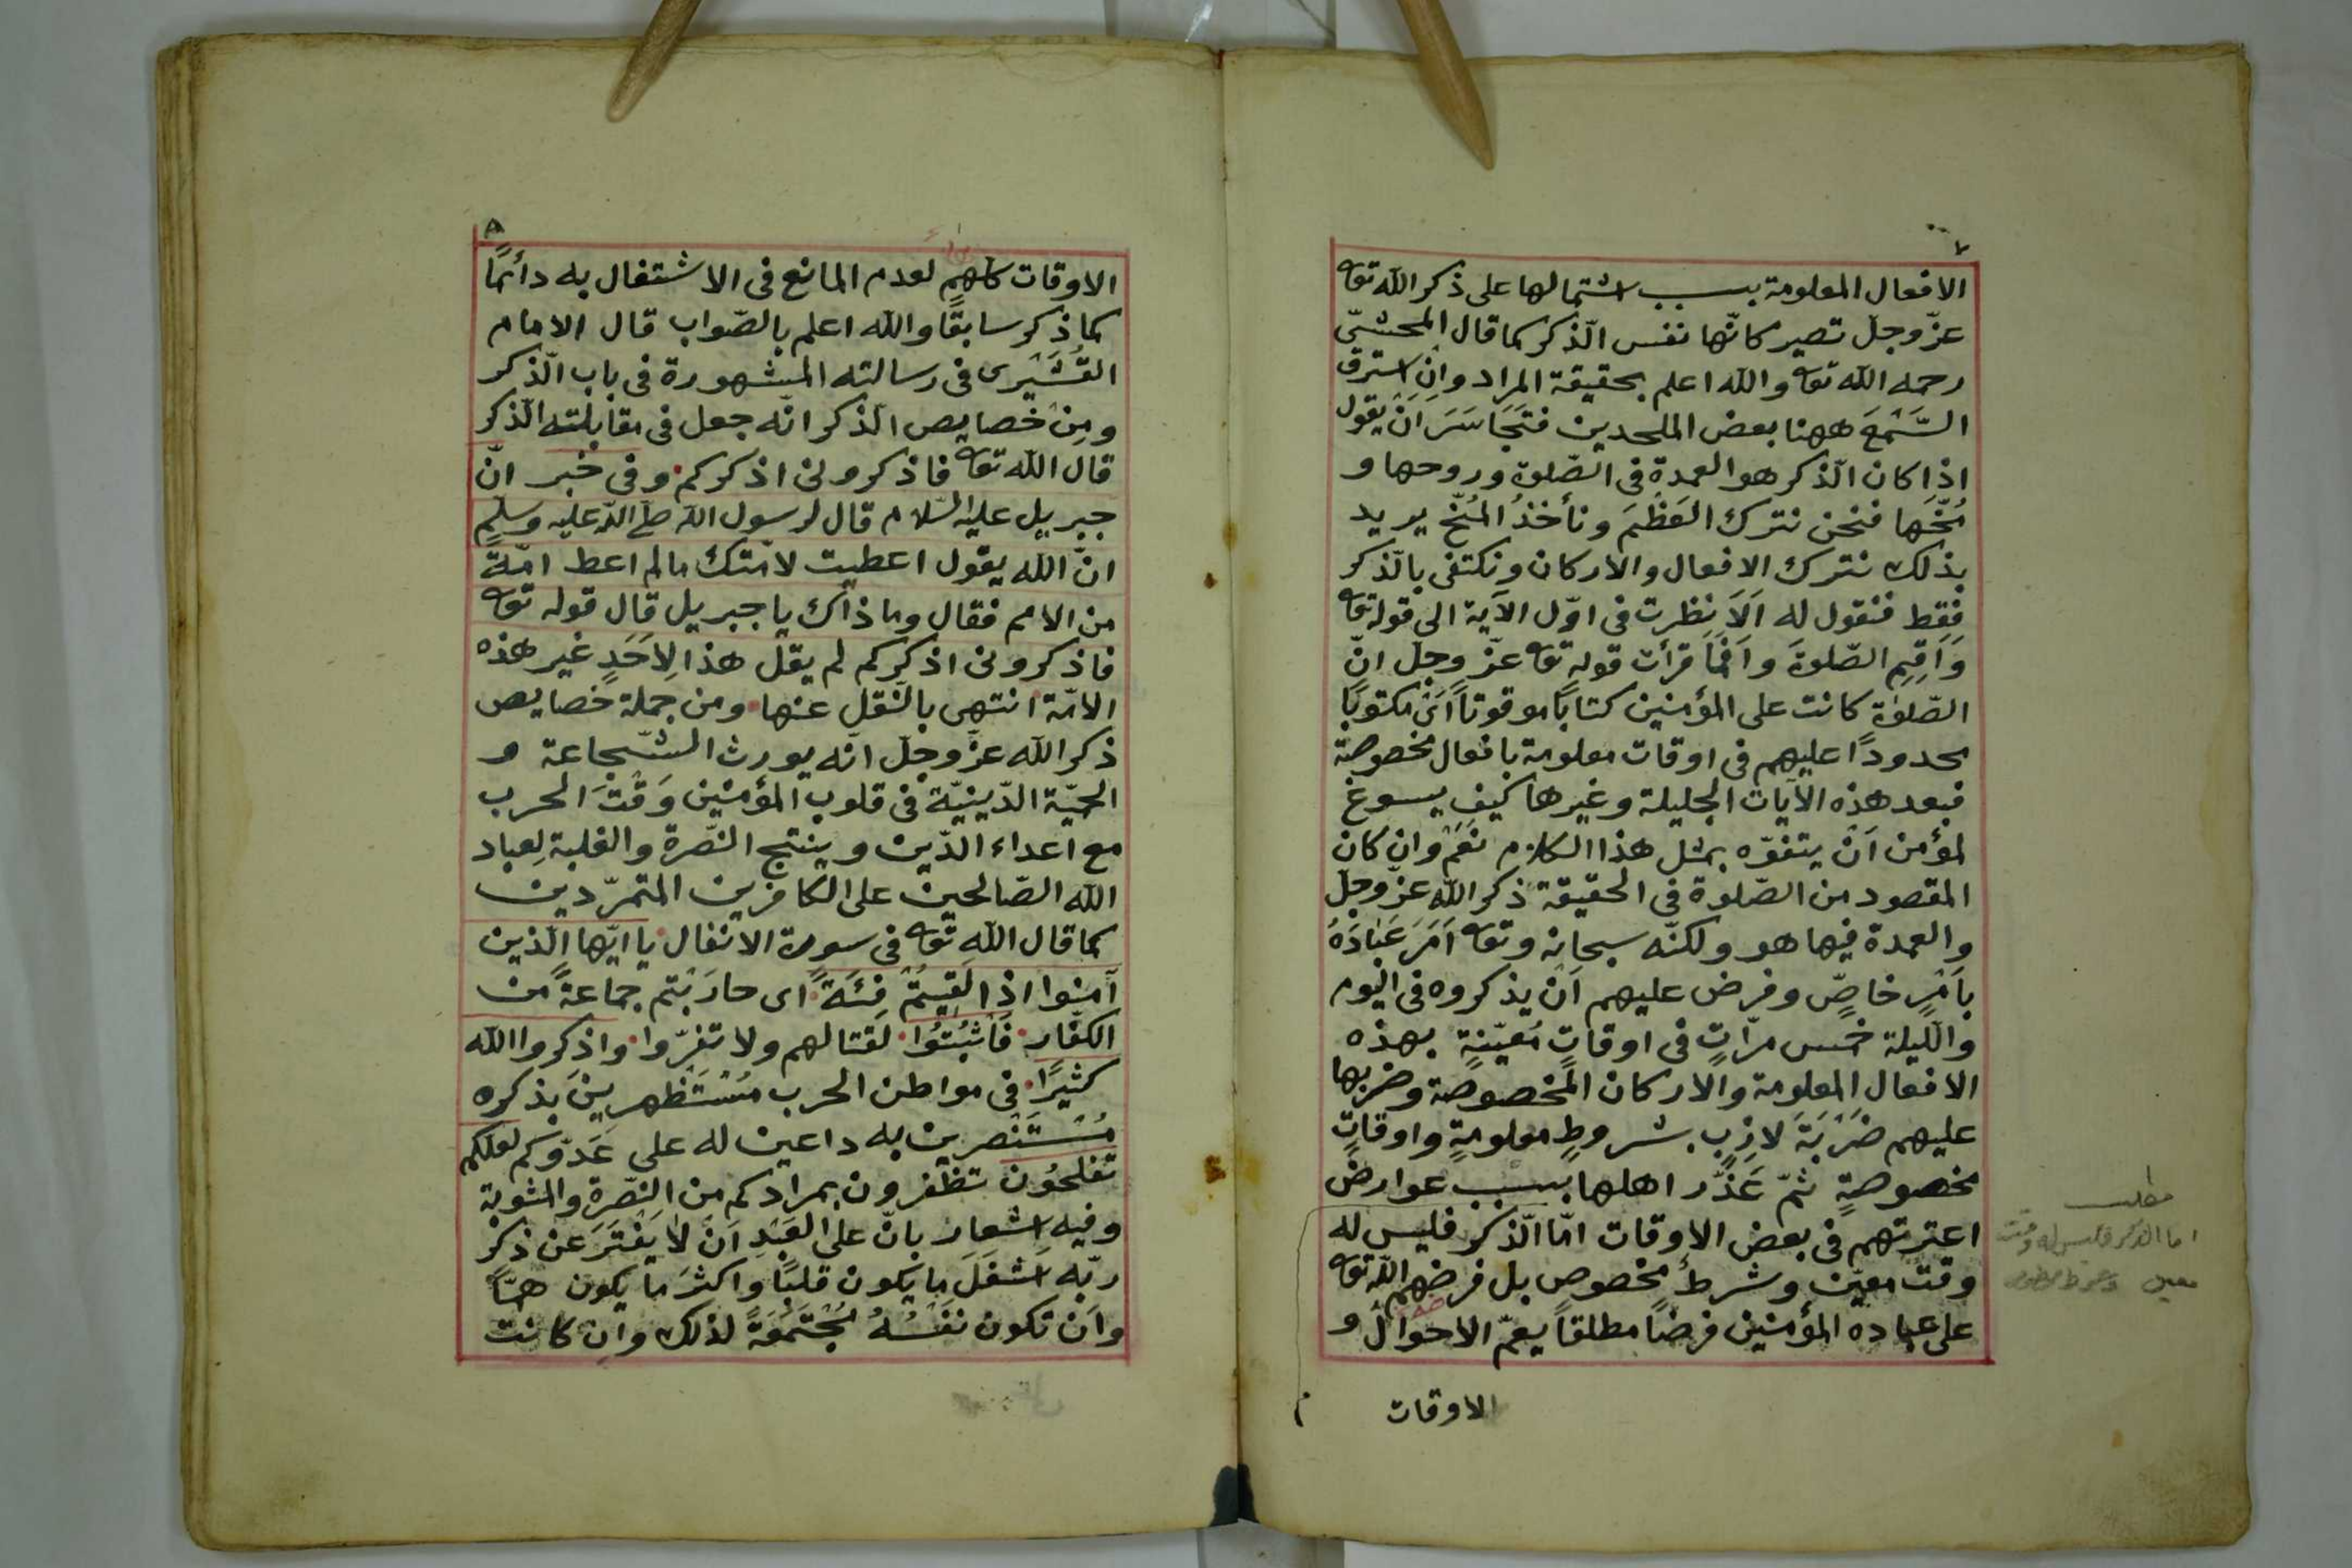 ٧
الافعال المعلومة بسبب اشتمالها على ذكر الله تعه
عزّ وجلّ تصير كانّها نفس الذّكر كما قال المحشّى
رحمه الله تعه والله اعلم بحقيقة المراد وان استرق
السَّمْعَ ههنا بعض الملحدين فتَجَاسَرَ اَنْ يقول
اذا كان الذّكر هو العمدة فى الصّلوة وروحها و
مُخّها فنحن نترك العَظْمَ ونأخذُ المُخّ يريد
بذلك نترك الافعال والاركان ونكتفى بالذّكر
فقط فنقول له اَلاَ نظرت فى اوّل الآية الى قوله تعه
وَاَقِمِ الصّلوةَ واَفَمَا قرأت قوله تعه عزّ وجلّ انّ
الصّلوة كانت على المؤمنين كتابًا موقوتاً اَىْ مكتوبًا
محدودًا عليهم فى اوقات معلومة بافعال مخصوصة
فبعد هذه الآيات الجليلة وغيرها كيف يسوغ
لمؤمن اَنْ يتفوّه بمثل هذا الكلام نعَمْ وان كان
المقصود من الصّلوة فى الحقيقة ذكر الله عزّ وجلّ
والعمدة فيها هو ولكنّه سبحانه وتعه اَمَرَ عَبَادَهُ
باَمْرٍ خاصٍّ وفرض عليهم اَنْ يذكروه فى اليوم
واللّيلة خمس مرّاتٍ فى اوقاتٍ مُعيّنةٍ بهذه
الافعال المعلومة والاركان المخصوصة وضربها
عليهم ضَرْبَةَ لازِبٍ بشروطٍ معلومةٍ واوقاتٍ
مخصوصةٍ ثمّ عَذَّر اهلها بسبب عوارض
اعترتهم فى بعض الاوقات امّا الذّكر فليس له
وقت معيّن وشرطٌ مخصوص بل فرضهم الله تعه
على عباده المؤمنين فرضًا مطلقاً يعمّ الاحوال و
الاوقات
مطلب
اما الذكر فليس له وقت
معين وشرط مخصوص
٨
الاوقات كلهم لعدم المانع فى الاشتغال به دائمًا
كما ذكر سابقًا والله اعلم بالصّواب قال الامام
القُشَيْرى فى رسالته المشهورة فى باب الذّكر
ومِنْ خصايص الذّكر انّه جعل فى مقابلته الذّكر
قال الله تعه فاذكرونى اذكركم وفى خبر انّ
جبريل عليه السّلام قال لرسول الله صلّى الله عليه وسلم
انّ الله يقول اعطيت لامّتك مالم اعط امّة
من الامم فقال وما ذاك يا جبريل قال قوله تعه
فاذكرونى اذكركم لم يقل هذا لِاَحَدٍ غير هذه
الامّة انتهى بالنّقل عنها ومن جملة خصايص
ذكر الله عزّ وجلّ انّه يورث الشّجاعة و
الحميّة الدّينيّة فى قلوب المؤمنين وَقْتَ الحرب
مع اعداء الدّين وينتج النّصرة والغلبة لعباد
الله الصّالحين على الكافرين المتمرّدين
كما قال الله تعه فى سورة الانفال يا ايّها الّذين
آمنوا اذا لَقِيتُمْ فِئَةً اى حارَبْتم جماعةً من
الكفّار فَاثْبُتُوا لقتالهم ولا تفرّوا واذكروا الله
كثيرًا فى مواطن الحرب مُسْتَظهرينَ بذكره
مُسْتَنْصرين به داعين له على عَدّوكم لعلكم
تفلحُون تظفرون بمرادكم من النّصرة والمثوبة
وفيه اشعار بانّ على العَبْدِ اَنْ لا يَفْتَرَ عن ذكر
ربّه اَشْغَلَ ما يكون قلبًا واكثرَ ما يكون همّاً
واَن تكون نفْسُهُ مُجْتَمَعَةً لذلك وان كانت